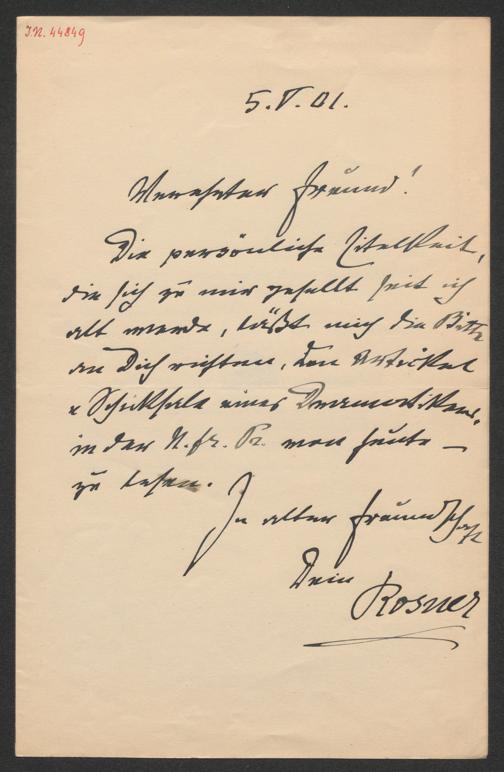 I.N. 44849
5. V. 01.
Verehrter Freund!
Die persönliche Eitelkeit,
die sich zu mir gesellt seit ich
alt werde, läßt mich die Bitte
an Dich richten, den Artickel
"Schicksale eines Dramatikers"
in der N. fr. Pr. von heute —
zu lesen.
In alter Freundschaft
Dein
Rosner